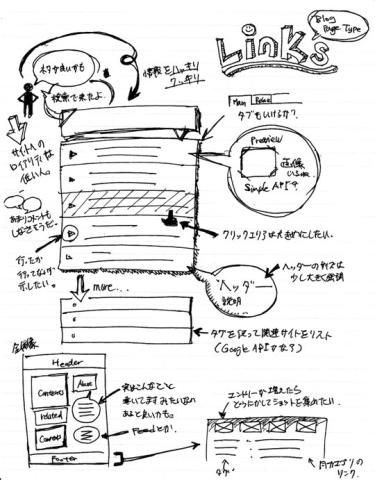 Links
Blog
Page Type
検索で来たよ。
情報をハッキリ
クッキリ
Main
タブもいけるか?
サイトへの
ロイアリティは
低い人。
Preview
画像
Simple APIか?
あまりコメントも
しなさそうだ。
クリックエリアは大きめにしたい。
行ったか
行ってないか
示したい。
more...
ヘッダー
説明
ヘッダーのサイズは
少し大きく強調
タグを使って関連サイトをリスト
(Google APIかな?)
全体像
Header
About
Contents
related
Footer
実はこんなこと
書いてますみたいなの
あると良いかも。
Feedとか。
エントリーが増えたら
どうにかしてショットを集めたい。
タグ
カテゴリの
リンク.